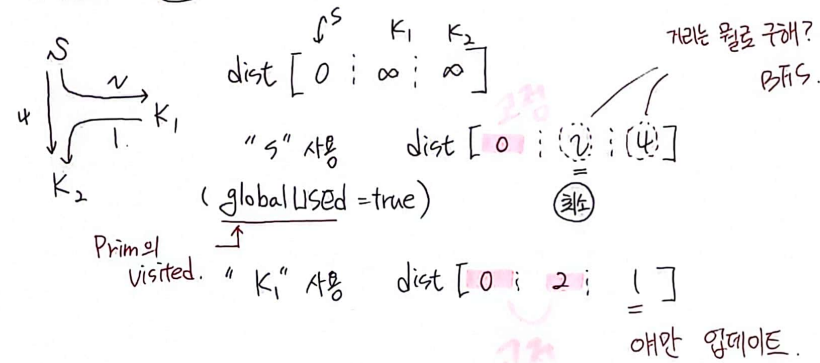 S
2
4
K₁
1.
K₂
S K₁ K₂
dist [ 0 ¦ ∞ ¦ ∞ ]
거리는 뭘로 구해?
BFS.
고정
"S" 사용 dist [ 0 ¦ 2 ¦ 4 ]
( globalUSEd = true)
최소
Prim의
visited.
"K₁" 사용 dist [ 0 ¦ 2 ¦ 1 ]
고정
얘만 업데이트.